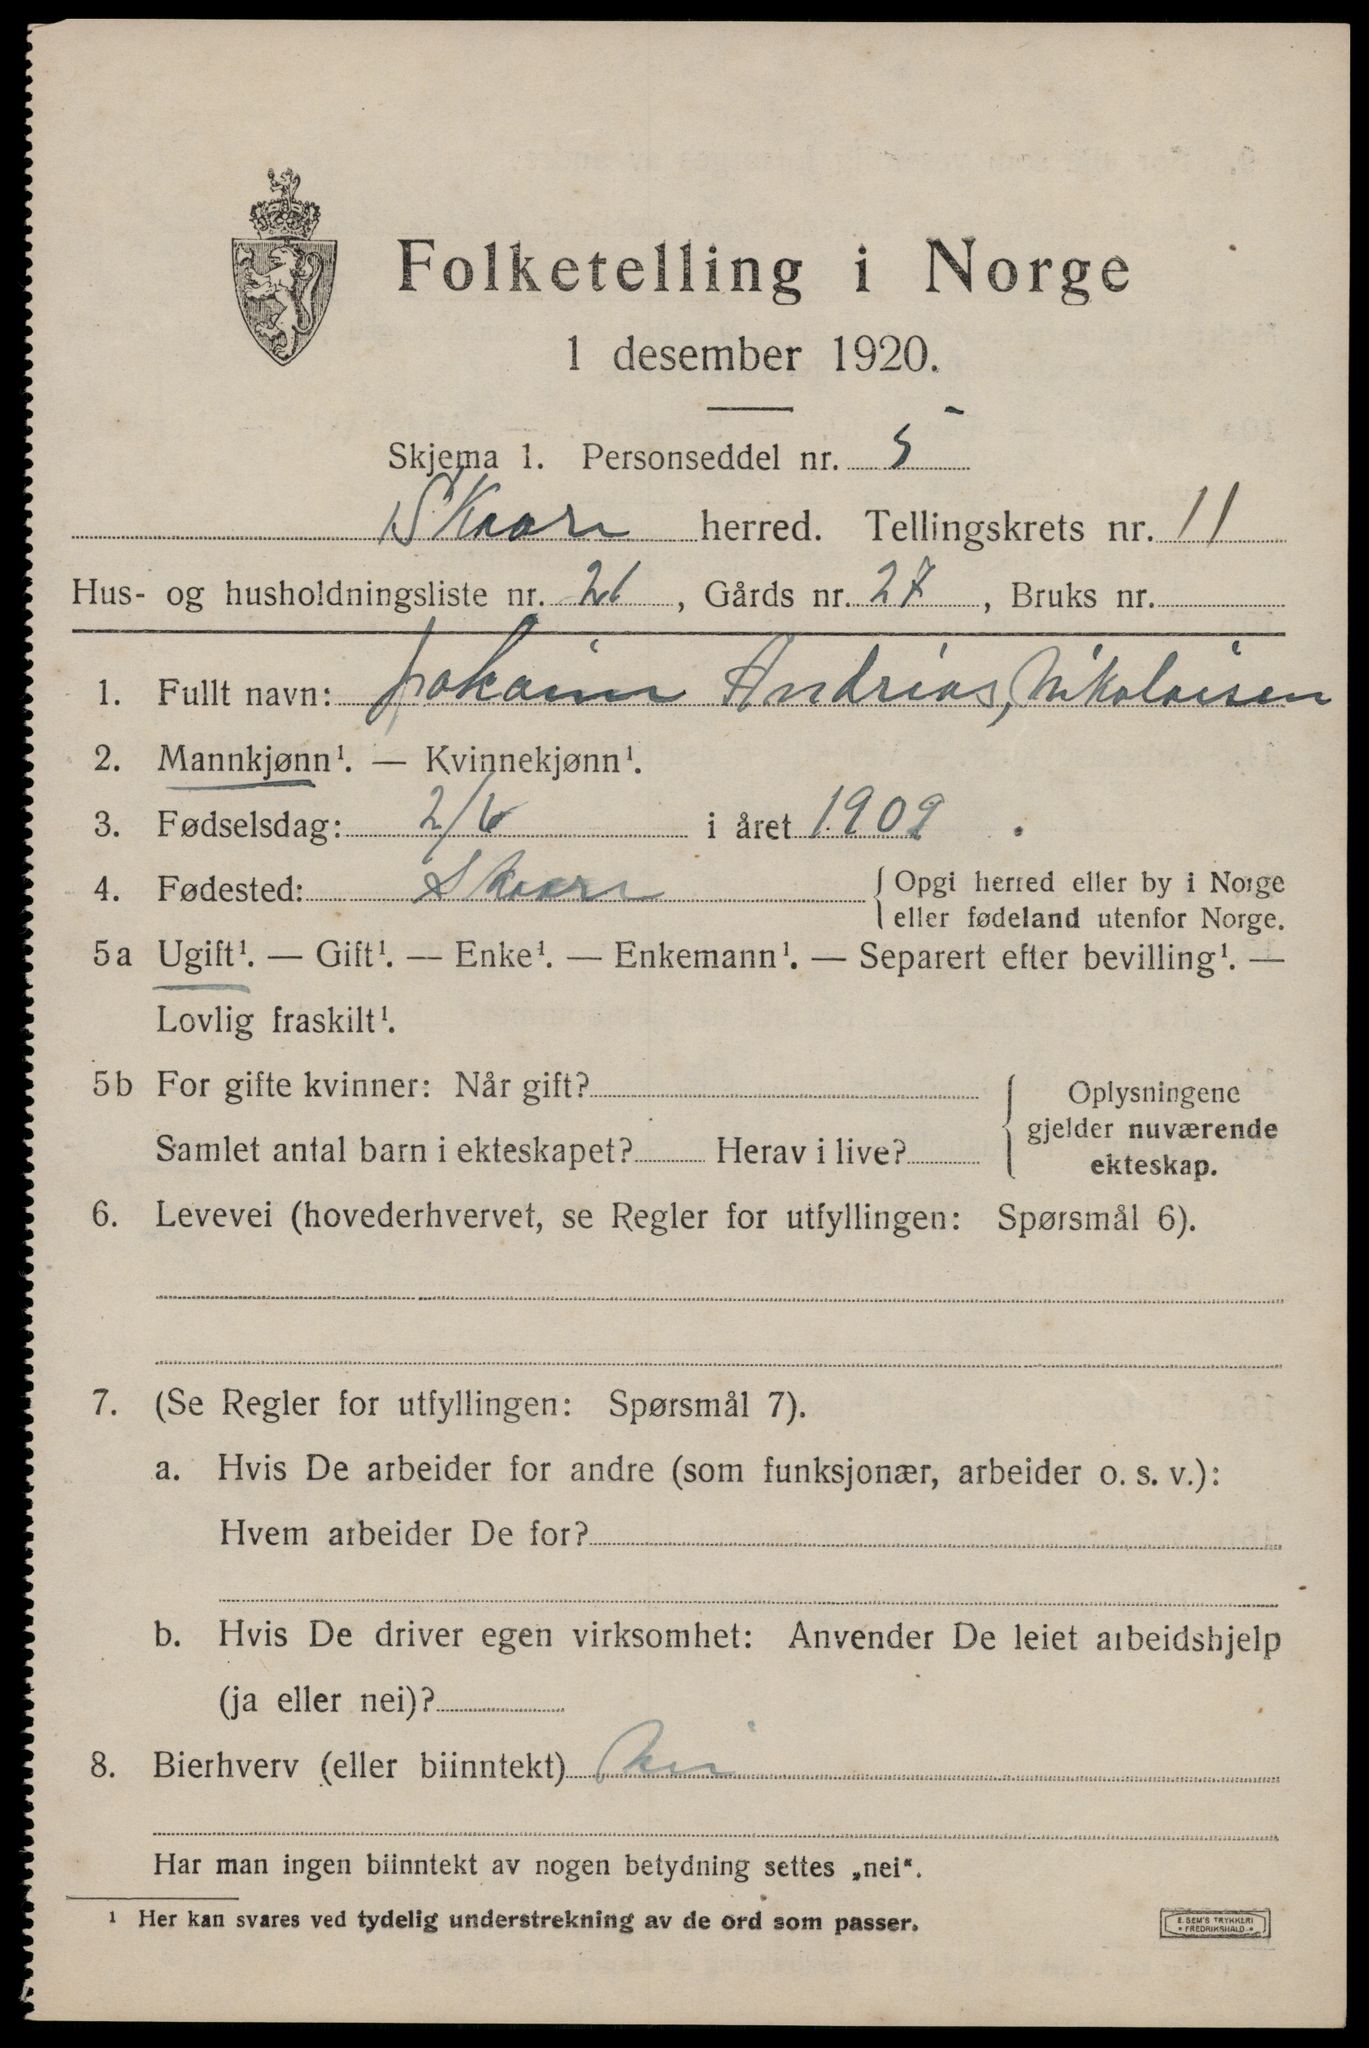 Folketelling i Norge
1 desember 1920.
Skjema 1. Personseddel nr. 5
Skaare herred. Tellingskrets nr. 11
Hus- og husholdningsliste nr. 26, Gårds nr. 27, Bruks nr.
1. Fullt navn: Jokaim Andrias, Nikolaisen
2. Mannkjønn¹. — Kvinnekjønn¹.
3. Fødselsdag: 2/6 i året 1909.
4. Fødested: Skaare { Opgi herred eller by i Norge
eller fødeland utenfor Norge.
5a Ugift¹. — Gift¹. — Enke¹. — Enkemann¹. — Separert efter bevilling¹. —
Lovlig fraskilt¹.
5b For gifte kvinner: Når gift?
Samlet antal barn i ekteskapet? Herav i live?
{ Oplysningene
gjelder nuværende
ekteskap.
6. Levevei (hovederhvervet, se Regler for utfyllingen: Spørsmål 6).
7. (Se Regler for utfyllingen: Spørsmål 7).
a. Hvis De arbeider for andre (som funksjonær, arbeider o. s. v.):
Hvem arbeider De for?
b. Hvis De driver egen virksomhet: Anvender De leiet arbeidshjelp
(ja eller nei)?
8. Bierhverv (eller biinntekt) Nei
Har man ingen biinntekt av nogen betydning settes „nei“.
¹ Her kan svares ved tydelig understrekning av de ord som passer.
E. SEM'S TRYKKERI
FREDRIKSHALD